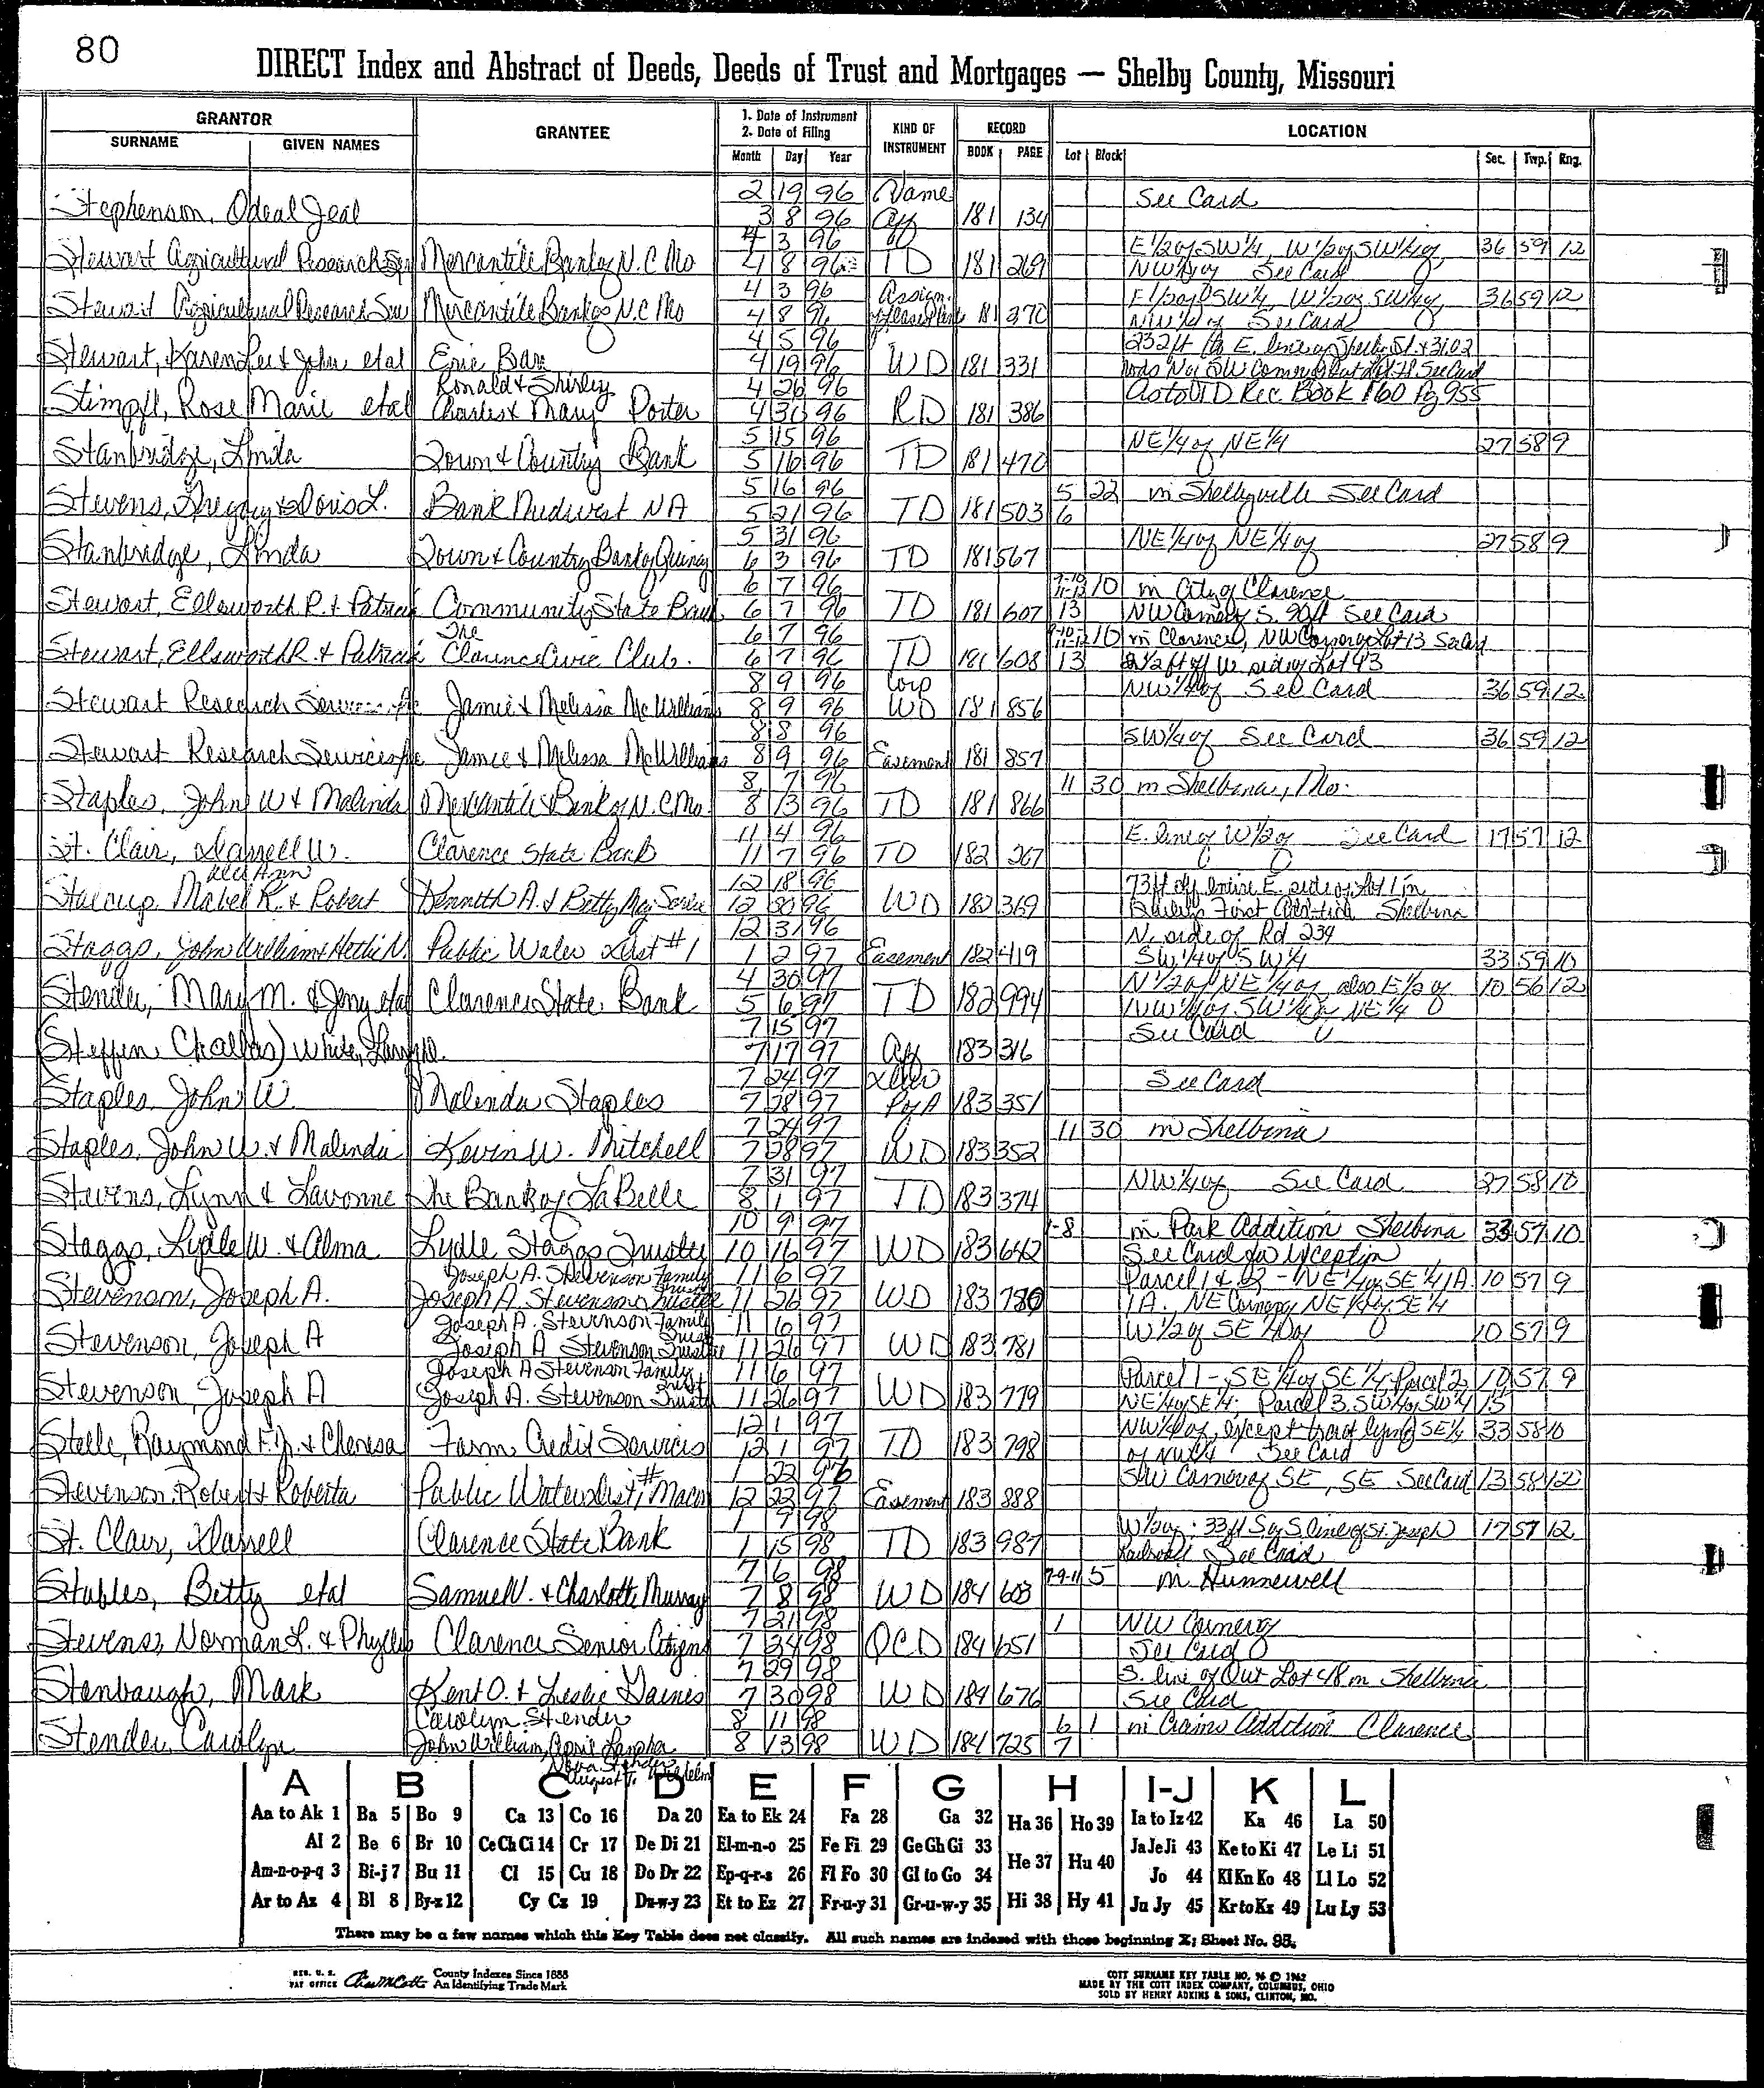 80
DIRECT Index and Abstract of Deeds, Deeds of Trust and Mortgages — Shelby County, Missouri
GRANTOR GRANTEE 1. Date of Instrument 2. Date of Filing KIND OF INSTRUMENT RECORD LOCATION
SURNAME GIVEN NAMES Month Day Year BOOK PAGE Lot Block Sec. Twp. Rng.
2 19 96 Name See Card
Stephenson, Odeal Jeal 3 8 96 Aff 181 134
4 3 96 E 1/2 of SW 1/4, W 1/2 of SW 1/4 of 36 59 12
Stewart Agricultural Research Ser Mercantile Bank of N.C Mo 4 8 96 TD 181 269 NW 1/4 of See Card
4 3 96 Assign. E 1/2 of SW 1/4, W 1/2 of SW 1/4 of 36 59 12
Stewart Agricultural Research Ser Mercantile Bank of N.C Mo 4 8 96 181 270 NW 1/4 of See Card
4 5 96 232 ft E. line of Shelby St. & 31.02
Stewart, Karen Lee & John etal Eric Bax 4 19 96 WD 181 331 rods N of SW Corner See Card
Ronald & Shirley 4 26 96 as to WD Rec Book 160 Pg 955
Stimpfl, Rose Marie etal Charles & Mary Porter 4 30 96 RD 181 386
5 15 96 NE 1/4 of NE 1/4 27 58 9
Stanbridge, Linda Town & Country Bank 5 16 96 TD 181 470
5 16 96 5 22 in Shelbyville See Card
Stevens, Gregory & Doris L. Bank Midwest NA 5 21 96 TD 181 503 6
5 31 96 NE 1/4 of NE 1/4 of 27 58 9
Stanbridge, Linda Town & Country Bank of Quincy 6 3 96 TD 181 567
6 7 96 9-10 11-12 10 in City of Clarence
Stewart, Ellsworth R. & Patricia Community State Bank 6 7 96 TD 181 607 13 NW Corner of S. 90ft See Card
The 6 7 96 9-10 11-12 10 in Clarence, NW Corner of Lot 13 See Card
Stewart, Ellsworth R. & Patricia Clarence Civic Club. 6 7 96 TD 181 608 13 2 1/2 ft off W side of Lot 43
8 9 96 Corp NW 1/4 of See Card 36 59 12
Stewart Research Services Inc Jamie & Melissa McWilliams 8 9 96 WD 181 856
8 8 96 SW 1/4 of See Card 36 59 12
Stewart Research Services Inc Jamie & Melissa McWilliams 8 9 96 Easement 181 857
8 7 96 11 30 in Shelbina, Mo.
Staples, John W & Malinda Mercantile Bank of N.C Mo. 8 13 96 TD 181 866
11 4 96 E. line of W 1/2 of See Card 17 57 12
St. Clair, Darrell W. Clarence State Bank 11 7 96 TD 182 267
12 18 96 73 ft off entire E. side of Lot 1 in
Stalcup Mabel R. & Robert Kenneth A. & Betty May 12 30 96 WD 182 369 First Addition Shelbina
12 31 96 N. side of Rd 234
Staggs, John William & Hettie N. Public Water Dist #1 1 2 97 Easement 182 419 SW 1/4 of SW 1/4 33 59 10
4 30 97 N 1/2 of NE 1/4 of also E 1/2 of 10 56 12
Stender, Mary M. & Jerry etal Clarence State Bank 5 6 97 TD 182 994 NW 1/4 of SW 1/4 of NE 1/4
7 15 97 See Card
(Steffin, Challas) White, Larry D. 7 17 97 Aff 183 316
7 24 97 See Card
Staples, John W. Malinda Staples 7 28 97 P of A 183 351
7 24 97 11 30 in Shelbina
Staples, John W. & Malinda Kevin W. Mitchell 7 28 97 WD 183 352
7 31 97 NW 1/4 of See Card 27 58 10
Stevens, Lynn & Lavonne The Bank of LaBelle 8 1 97 TD 183 374
10 9 97 1-8 in Park Addition Shelbina 33 57 10
Staggs, Lydle W. & Alma Lydle Staggs Trustee 10 16 97 WD 183 642 See Card for exception
Joseph A. Stevenson Family Trust 11 6 97 Parcel 1 & 2 - NE 1/4 of SE 1/4 1A. 10 57 9
Stevenson, Joseph A. Joseph A. Stevenson Trustee 11 26 97 WD 183 780 1A. NE Corner of NE 1/4 of SE 1/4
Joseph A. Stevenson Family Trust 11 6 97 W 1/2 of SE 1/4 of 10 57 9
Stevenson, Joseph A Joseph A Stevenson Trustee 11 26 97 WD 183 781
Joseph A Stevenson Family Trust 11 6 97 Parcel 1 - SE 1/4 of SE 1/4 Parcel 2 10 57 9
Stevenson, Joseph A Joseph A. Stevenson Trustee 11 26 97 WD 183 779 NE 1/4 of SE 1/4; Parcel 3. SW 1/4 of SW 1/4 15
12 1 97 NW 1/4 of, except tract lying SE 1/4 33 58 10
Stelle, Raymond F. Jr. & Cheresa Farm Credit Services 12 1 97 TD 183 798 of NW 1/4 See Card
1 22 96 SW Corner of SE, SE See Card 13 58 12
Stevenson, Robert & Roberta Public Water Dist #1 Macon 12 23 97 Easement 183 888
1 7 98 W 1/2 of; 33 ft S of S. line of St. Joseph 17 57 12
St. Clair, Darrell Clarence State Bank 1 15 98 TD 183 987 Railroad See Card
7 6 98 7-9-11 5 in Hunnewell
Stables, Betty etal Samuel V. & Charlotte Murray 7 8 98 WD 184 603
7 21 98 1 NW Corner of
Stevens, Norman L. & Phyllis Clarence Senior Citizens 7 24 98 QCD 184 651 See Card
7 29 98 S. line of Out Lot 48 in Shelbina
Stenbaugh, Mark Kent O. & Leslie Gaines 7 30 98 WD 184 676 See Card
Carolyn Stender 8 11 98 6 1 in Crains Addition Clarence
Stender, Carolyn John William, April 8 13 98 WD 184 725 7
August T. Wilhelm
A B C D E F G H I-J K L
Aa to Ak 1 Ba 5 Bo 9 Ca 13 Co 16 Da 20 Ea to Ek 24 Fa 28 Ga 32 Ha 36 Ho 39 Ia to Iz 42 Ka 46 La 50
Al 2 Be 6 Br 10 Ce Ch Ci 14 Cr 17 De Di 21 El-m-n-o 25 Fe Fi 29 Ge Gh Gi 33 He 37 Hu 40 Ja Je Ji 43 Ke to Ki 47 Le Li 51
Am-n-o-p-q 3 Bi-j 7 Bu 11 Cl 15 Cu 18 Do Dr 22 Ep-q-r-s 26 Fl Fo 30 Gl to Go 34 Jo 44 Kl Kn Ko 48 Ll Lo 52
Ar to Az 4 Bl 8 By-z 12 Cy Cz 19 Du-w-y 23 Et to Ez 27 Fr-u-y 31 Gr-u-w-y 35 Hi 38 Hy 41 Ju Jy 45 Kr to Kz 49 Lu Ly 53
There may be a few names which this Key Table does not classify. All such names are indexed with those beginning X; Sheet No. 95.
REG. U. S. PAT OFFICE County Indexes Since 1888 An Identifying Trade Mark
COTT SURNAME KEY TABLE NO. 96 © 1962
MADE BY THE COTT INDEX COMPANY, COLUMBUS, OHIO
SOLD BY HENRY ADKINS & SONS, CLINTON, MO.